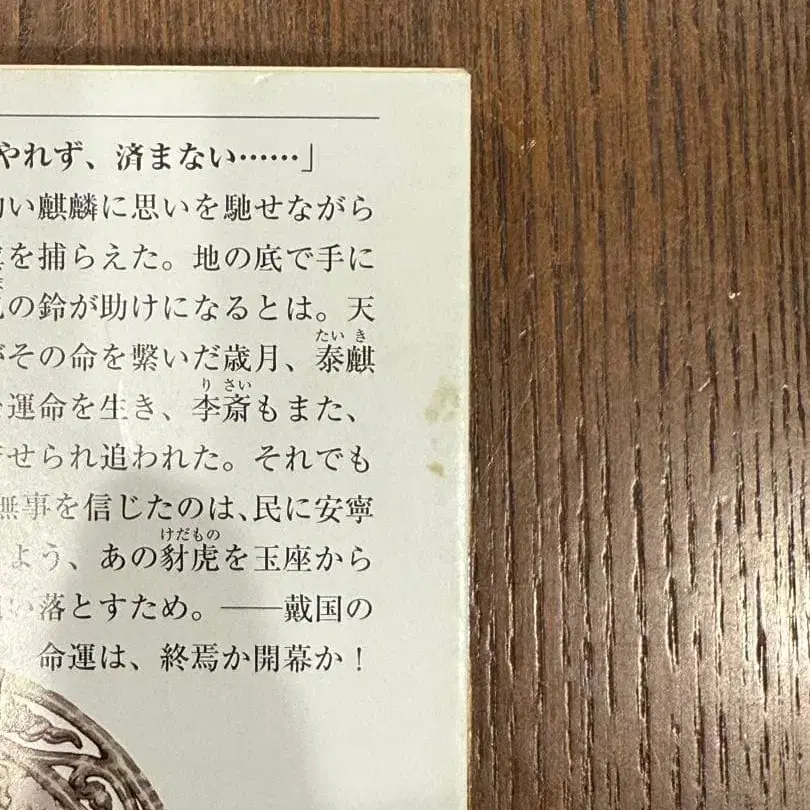 やれず、済まない……」
い麒麟に思いを馳せながら
を捕らえた。地の底で手に
の鈴が助けになるとは。天
がその命を繋いだ歳月、泰麒
運命を生き、李斎もまた、
せられ追われた。それでも
無事を信じたのは、民に安寧
よう、あの豺虎を玉座から
い落とすため。――戴国の
命運は、終焉か開幕か！